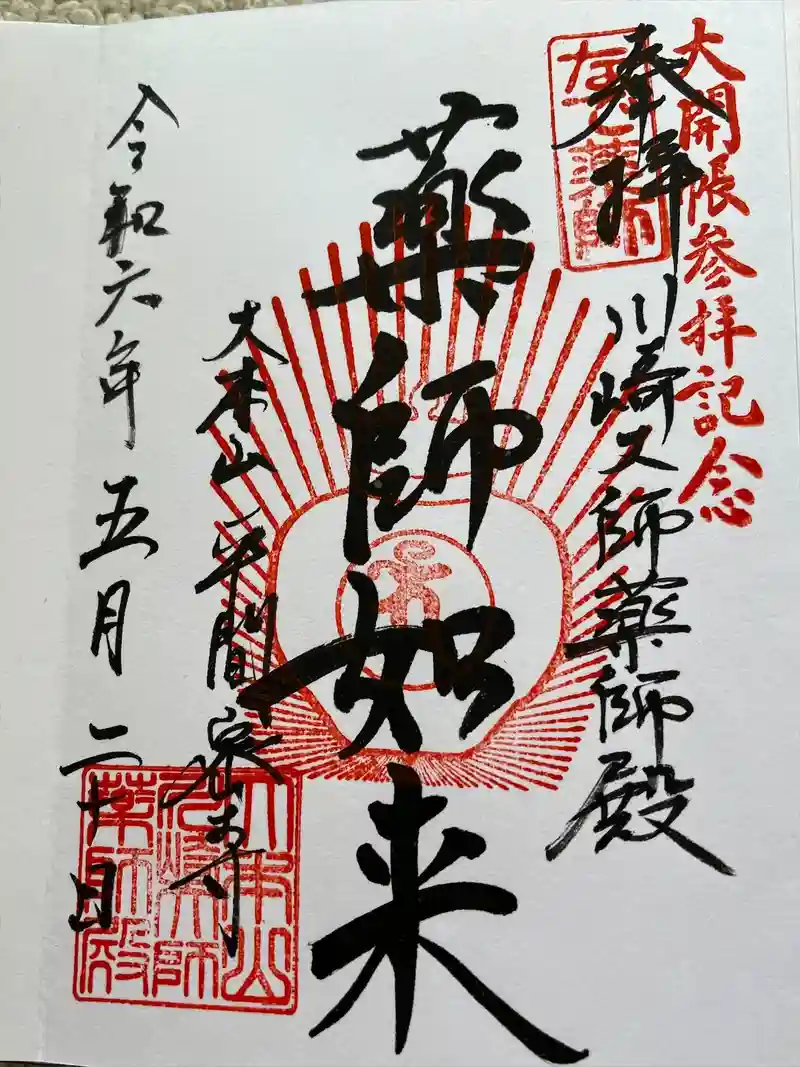 大開帳参拝記念
奉拝
なで薬師
川崎大師薬師殿
薬師如来
大本山平間寺
大本山
川崎大師
薬師殿
令和六年五月二十日